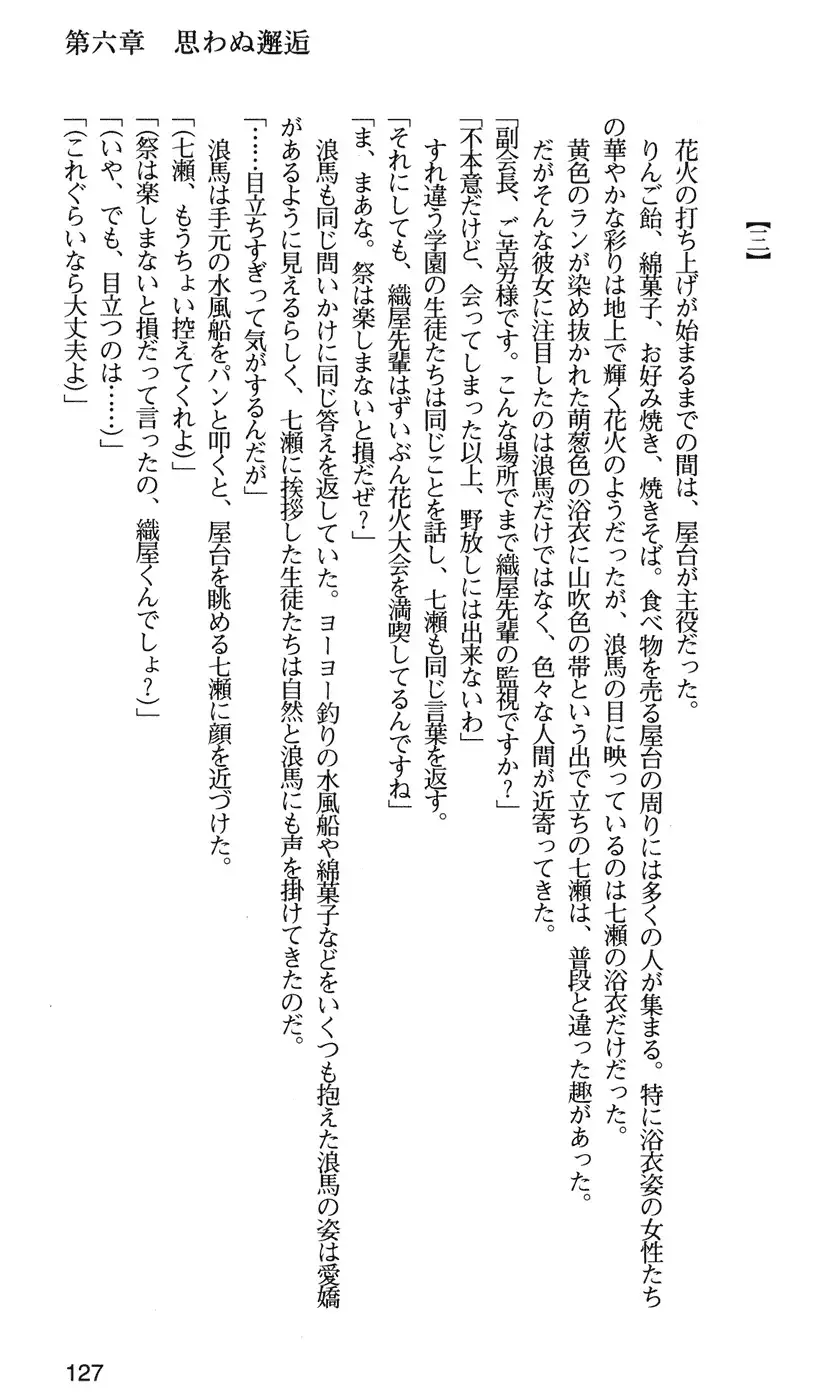 第六章　思わぬ邂逅
【三】
　花火の打ち上げが始まるまでの間は、屋台が主役だった。
　りんご飴、綿菓子、お好み焼き、焼きそば。食べ物を売る屋台の周りには多くの人が集まる。特に浴衣姿の女性たち
の華やかな彩りは地上で輝く花火のようだったが、浪馬の目に映っているのは七瀬の浴衣だけだった。
　黄色のランが染め抜かれた萌葱色の浴衣に山吹色の帯という出で立ちの七瀬は、普段と違った趣があった。
　だがそんな彼女に注目したのは浪馬だけではなく、色々な人間が近寄ってきた。
「副会長、ご苦労様です。こんな場所でまで織屋先輩の監視ですか？」
「不本意だけど、会ってしまった以上、野放しには出来ないわ」
　すれ違う学園の生徒たちは同じことを話し、七瀬も同じ言葉を返す。
「それにしても、織屋先輩はずいぶん花火大会を満喫してるんですね」
「ま、まあな。祭は楽しまないと損だぜ？」
　浪馬も同じ問いかけに同じ答えを返していた。ヨーヨー釣りの水風船や綿菓子などをいくつも抱えた浪馬の姿は愛嬌
があるように見えるらしく、七瀬に挨拶した生徒たちは自然と浪馬にも声を掛けてきたのだ。
「……目立ちすぎって気がするんだが」
　浪馬は手元の水風船をパンと叩くと、屋台を眺める七瀬に顔を近づけた。
「（七瀬、もうちょい控えてくれよ）」
「（祭は楽しまないと損だって言ったの、織屋くんでしょ？）」
「（いや、でも、目立つのは……）」
「（これぐらいなら大丈夫よ）」
127